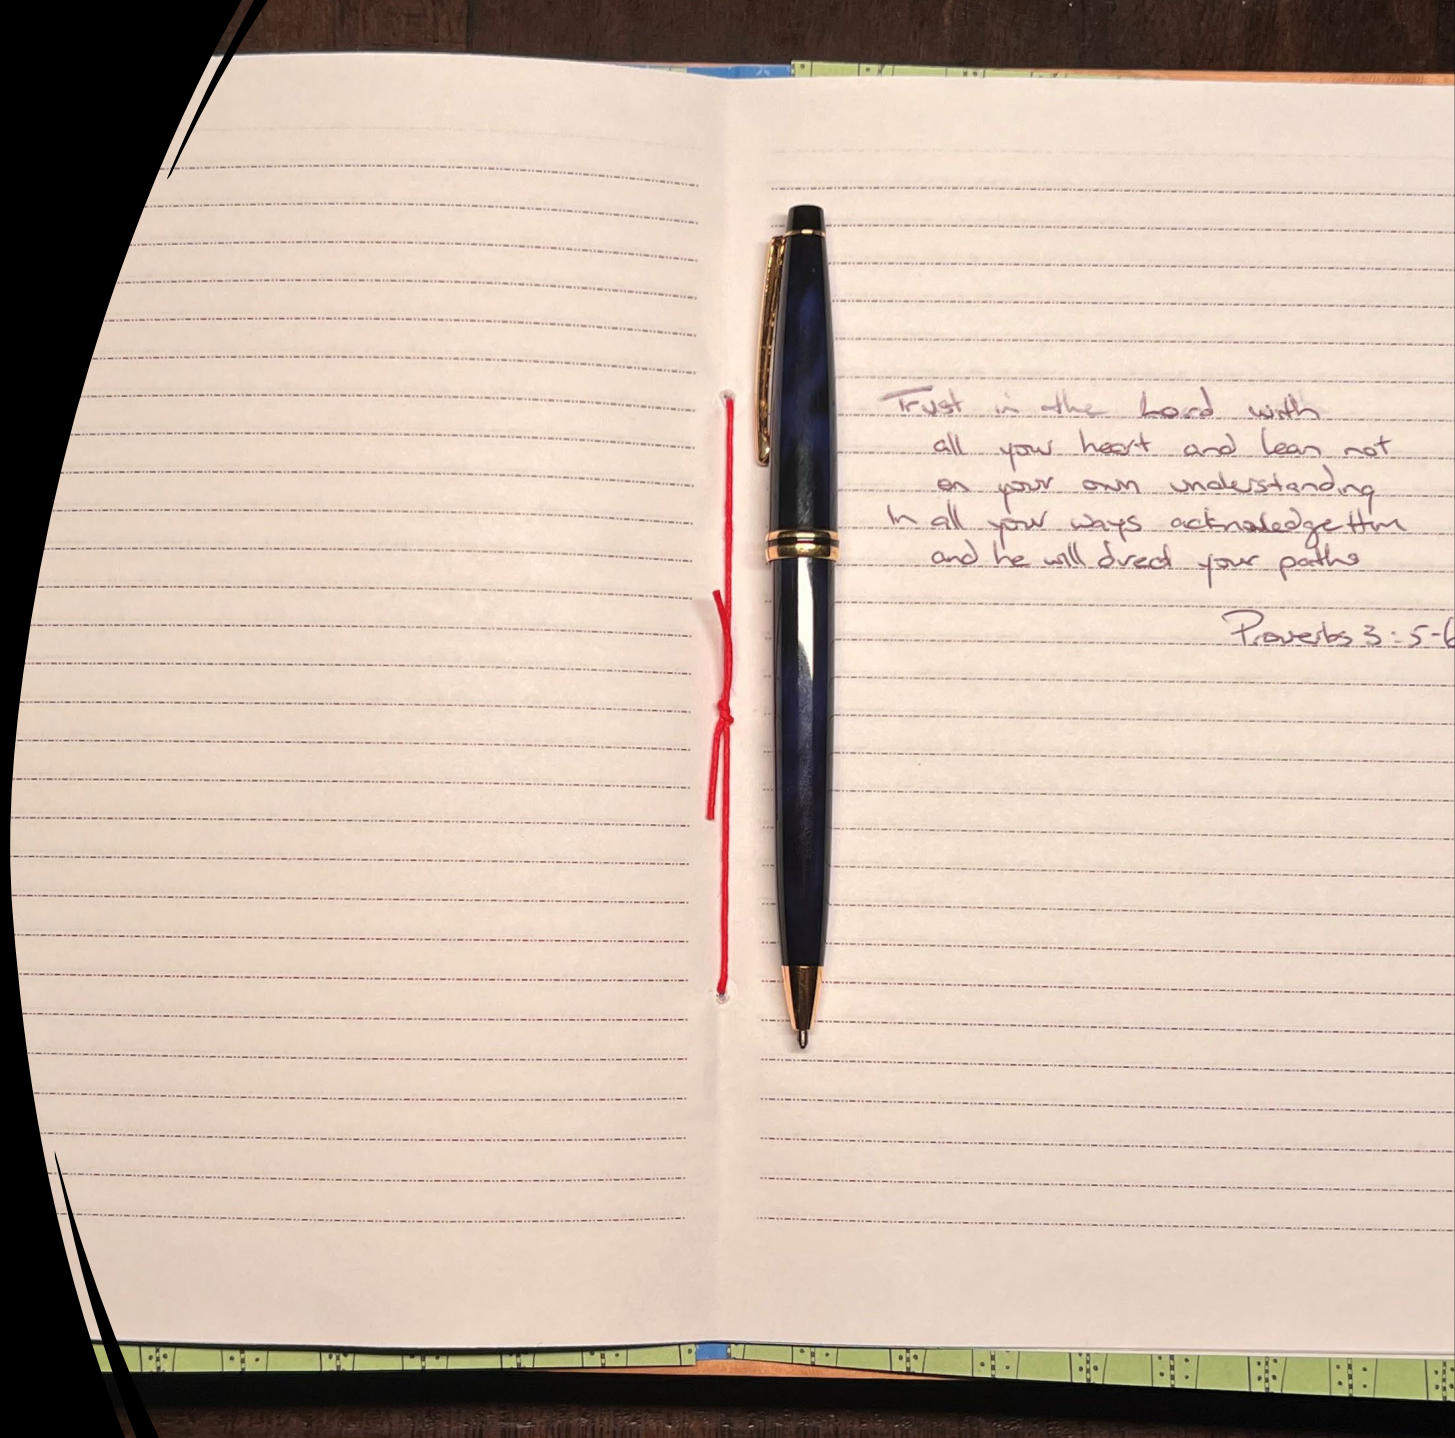 Trust in the Lord with
all your heart and lean not
on your own understanding
In all your ways acknowledge Him
and he will direct your paths
Proverbs 3:5-6